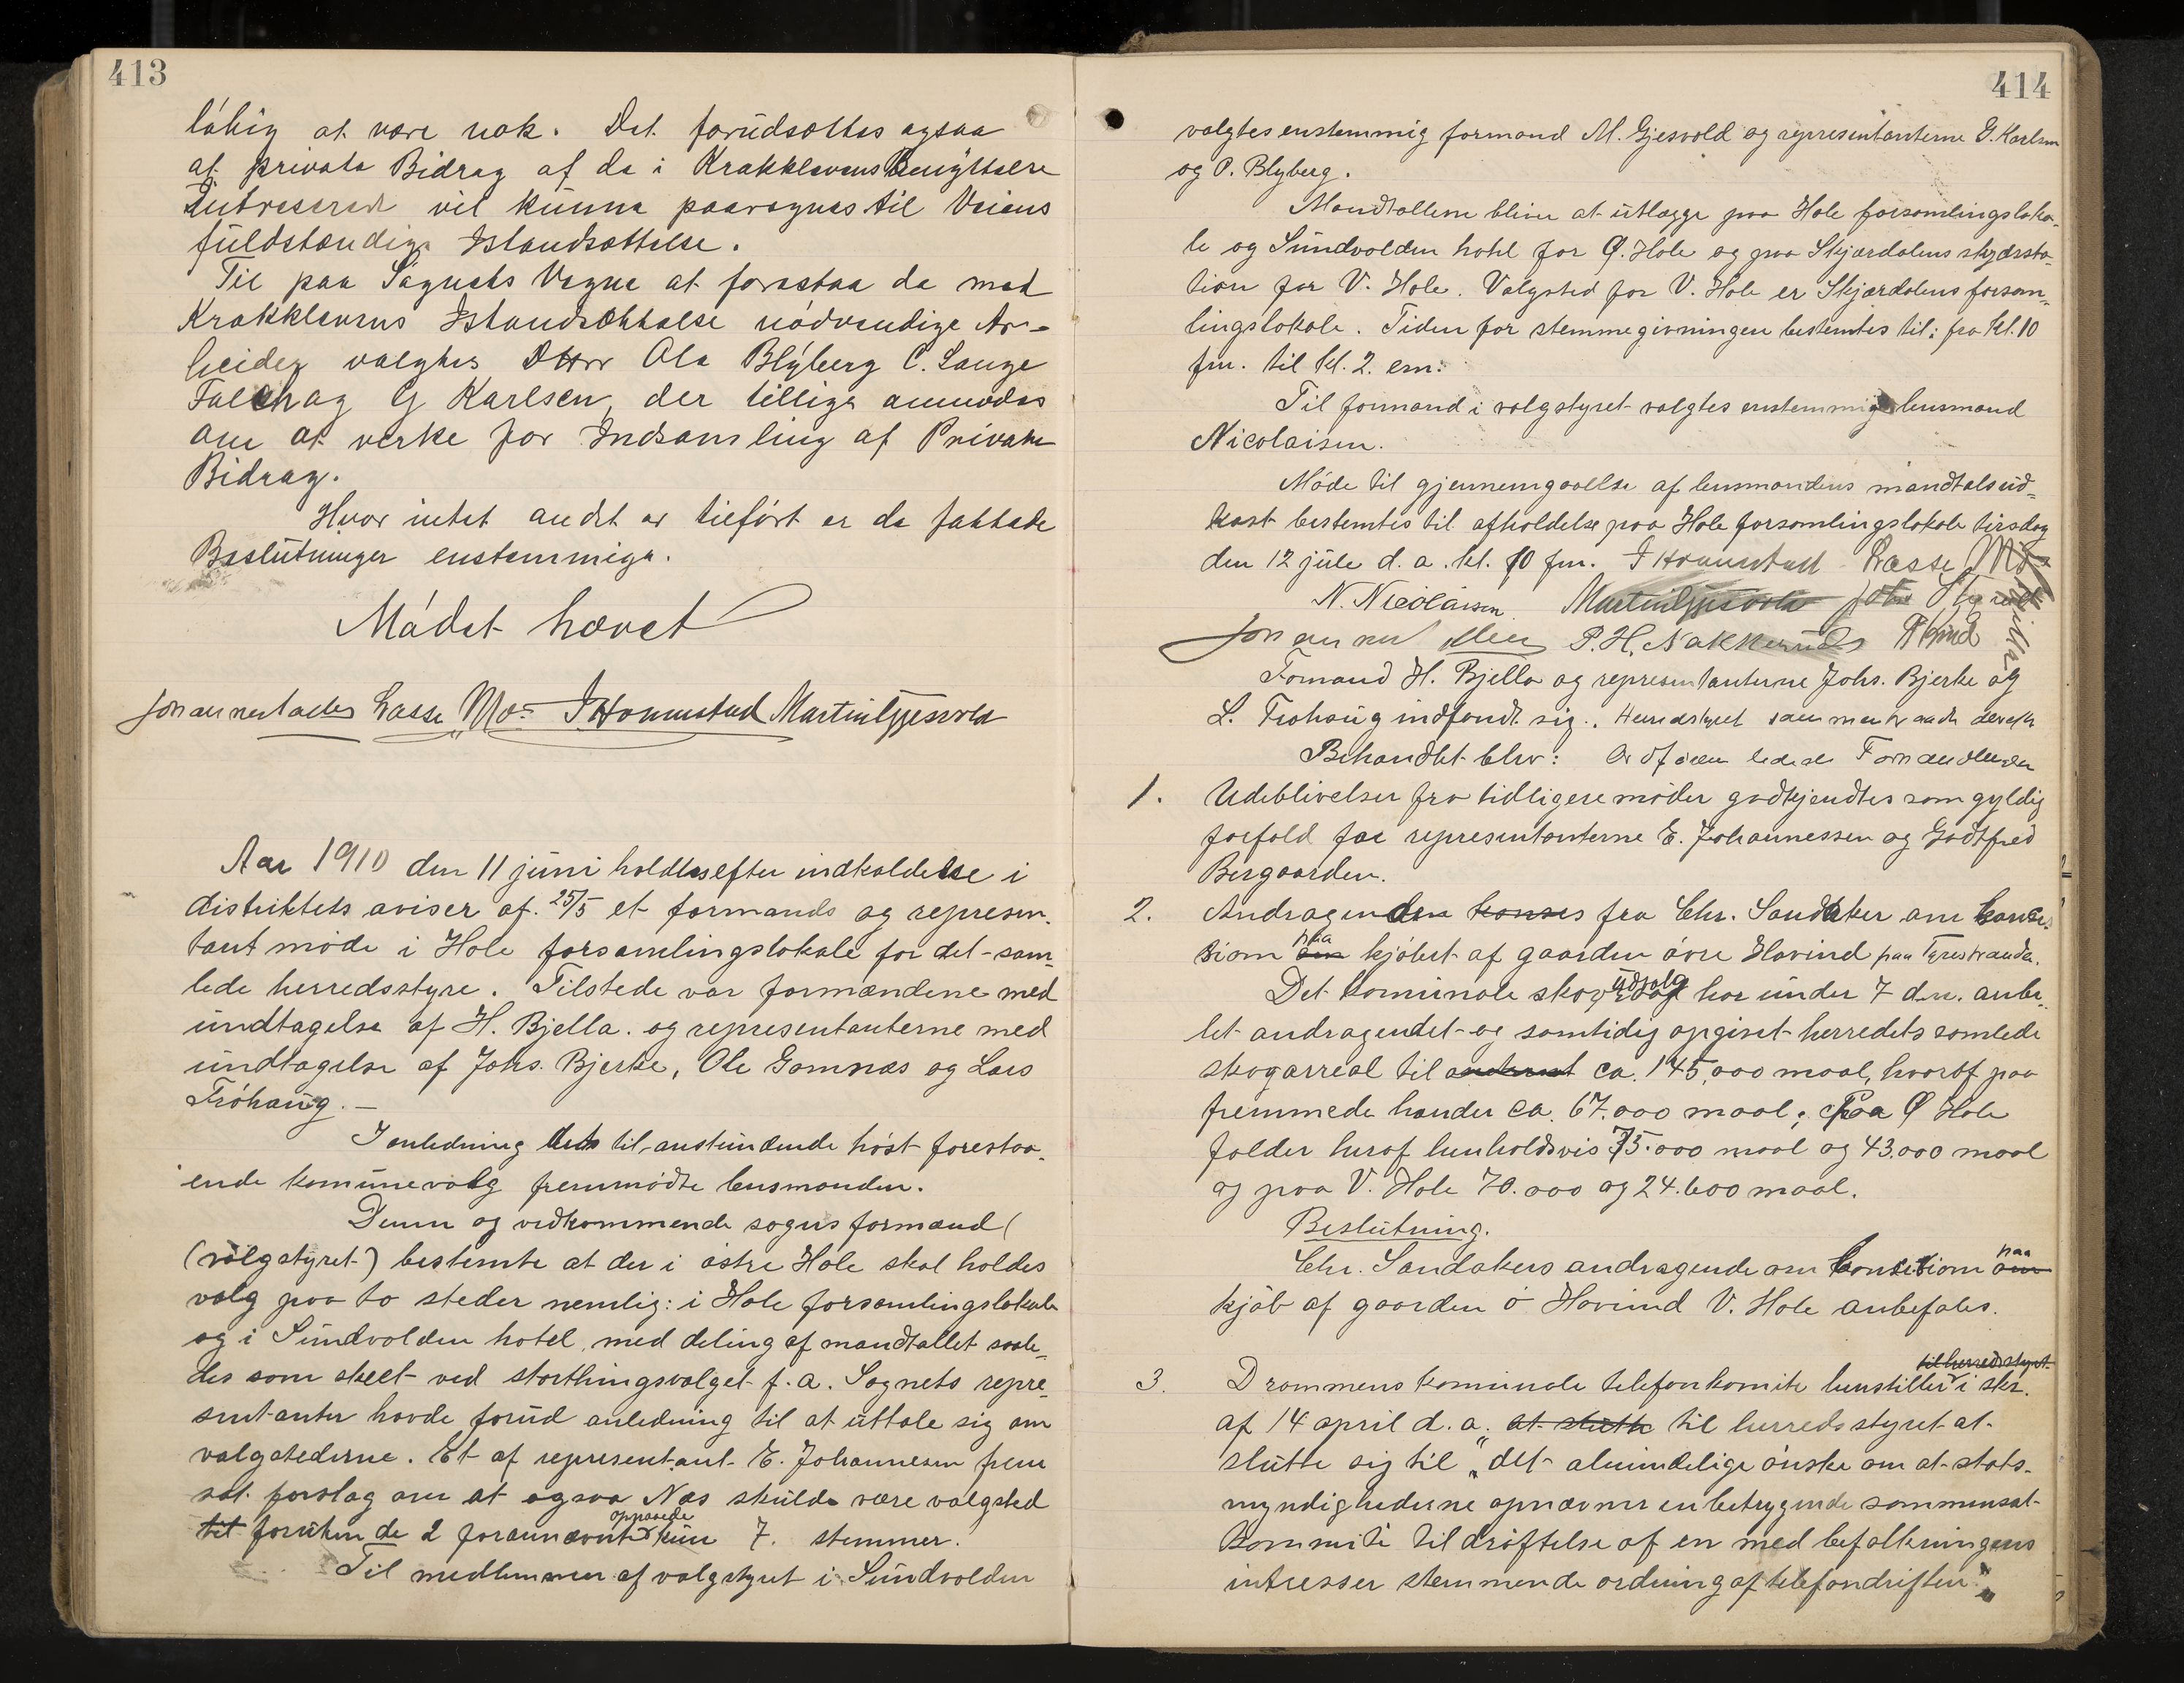 413
löbig at være nok. Det forudsættes ogsaa
at private Bidrag af de i Krokklevens Benyttelse
Interesserede vil kunne paaregnes til Veiens
fuldstændige Istandsættelse.
Til paa Sognets Vegne at forestaa de med
Krokklevens Istandsættelse nödvendige Ar-
beider valgtes DHrr Ole Blyberg C. Lange
Falch og G Karlsen, der tillige anmodes
om at virke for Indsamling af Private
Bidrag.
Hvor intet andet er tilfört er de fattede
Beslutninger enstemmige.
Mödet hævet
Lasse Moe I Honnestad Martin Gjesvold
Aar 1910 den 11 juni holdtes efter indkaldelse i
distriktets aviser af 25/5 et formands og represen-
tant møde i Hole forsamlingslokale for det sam-
lede herredsstyre. Tilstede var formændene med
undtagelse af H. Bjella. og representanterne med
undtagelse af Johs. Bjerke, Ole Gomnæs og Lars
Fröhaug. —
I anledning det til anstundende höst forestaa-
ende komunevalg fremmödte lensmanden.
Denne og vedkommende sogns formænd (
(valgstyret) bestemte at der i östre Hole skal holdes
valg paa to steder nemlig: i Hole forsamlingslokale
og i Sundvolden hotel, med deling af mandtallet saale-
des som skeet ved storthingsvalget f. a. Sognets repre-
sentanter havde forud anledning til at uttale sig om
valgstederne. Et af representant E. Johannesen frem
sat forslag om at ogsaa Næs skulde være valgsted
tet foruten de 2 forannævnte opnaaede kun 7. stemmer.
Til medlemmer af valgstyret i Sundvolden
414
valgtes enstemmig formand M. Gjesvold og representanterne G. Karlsen
og P. Blyberg.
Mandtallene bliver at utlægge paa Hole forsamlingsloka-
le og Sundvolden hotel for Ø. Hole og paa Skjærdalens skydssta-
tion for V. Hole. Valgsted for V. Hole er Skjærdalens forsam-
lingslokale. Tiden for stemmegivningen bestemtes til: fra kl. 10
fm. til kl. 2. em:
Til formand i valgstyret valgtes enstemmig lensmand
Nicolaisen.
Möde til gjennemgaaelse af lensmandens mandtalsud-
kast bestemtes til afholdelse paa Hole forsamlingslokale tirsdag
den 12 jule d. a. kl. 10 fm. I Honnestad Lasse Moe
N. Nicolaisen Martin Gjesvold
P. H. Nakkerud
Formand H. Bjella og representanterne Johs. Bjerke og
L. Frohaug indfandt sig. Herredstyret sammentraadte derefter
Behandlet blev: Ordföreren ledede Forhandlingen
1. Udeblivelser fra tidligere möder godkjendtes som gyldig
forfald for representanterne E. Johannessen og Godtfred
Bergaarden.
2. Andragenden konses fra Chr. Sandaker om konse-
siom om paa kjöbet af gaarden övre Hovind paa Tyrestranden.
Det komunale skogudvalg har under 7 dn. anbe-
let andragendet og samtidig opgivet herredets samlede
skogarreal til ca. 145,000 maal, hvoraf paa
fremmede hænder ca. 67.000 maal; Paa Ø Hole
falder heraf henholdsvis 75.000 maal og 43.000 maal
og paa V. Hole 70.000 og 24.600 maal.
Beslutning.
Chr. Sandakers andragende om konsesiom om paa
kjöb af gaarden ö Hovind V. Hole anbefales.
3. Drammens komunale telefonkomite henstiller til herredsstyret i skr.
af 14 april d. a. at slutte til herredsstyret at
slutte sig til "det almindelige önske om at stats-
myndighederne opnævner en betryggende sammensat
kommité til dröftelse af en med befolkningens
intresser stemmende ordning af telefondriften"